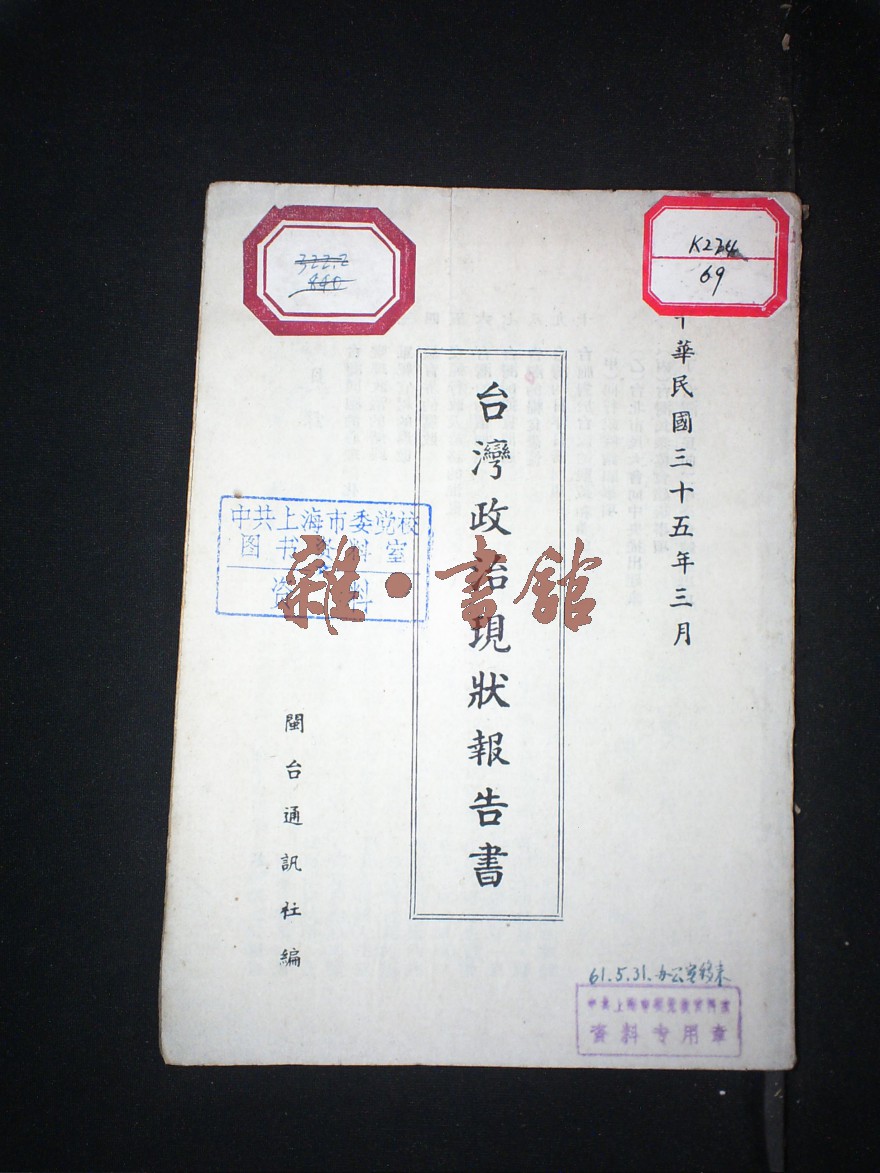 322.2
890
K234
69
中華民國三十五年三月
台灣政治現狀報告書
中共上海市委党校
图书资料室
资料
雜·書館
閩台通訊社編
61.5.31.办公室移来
資料专用章